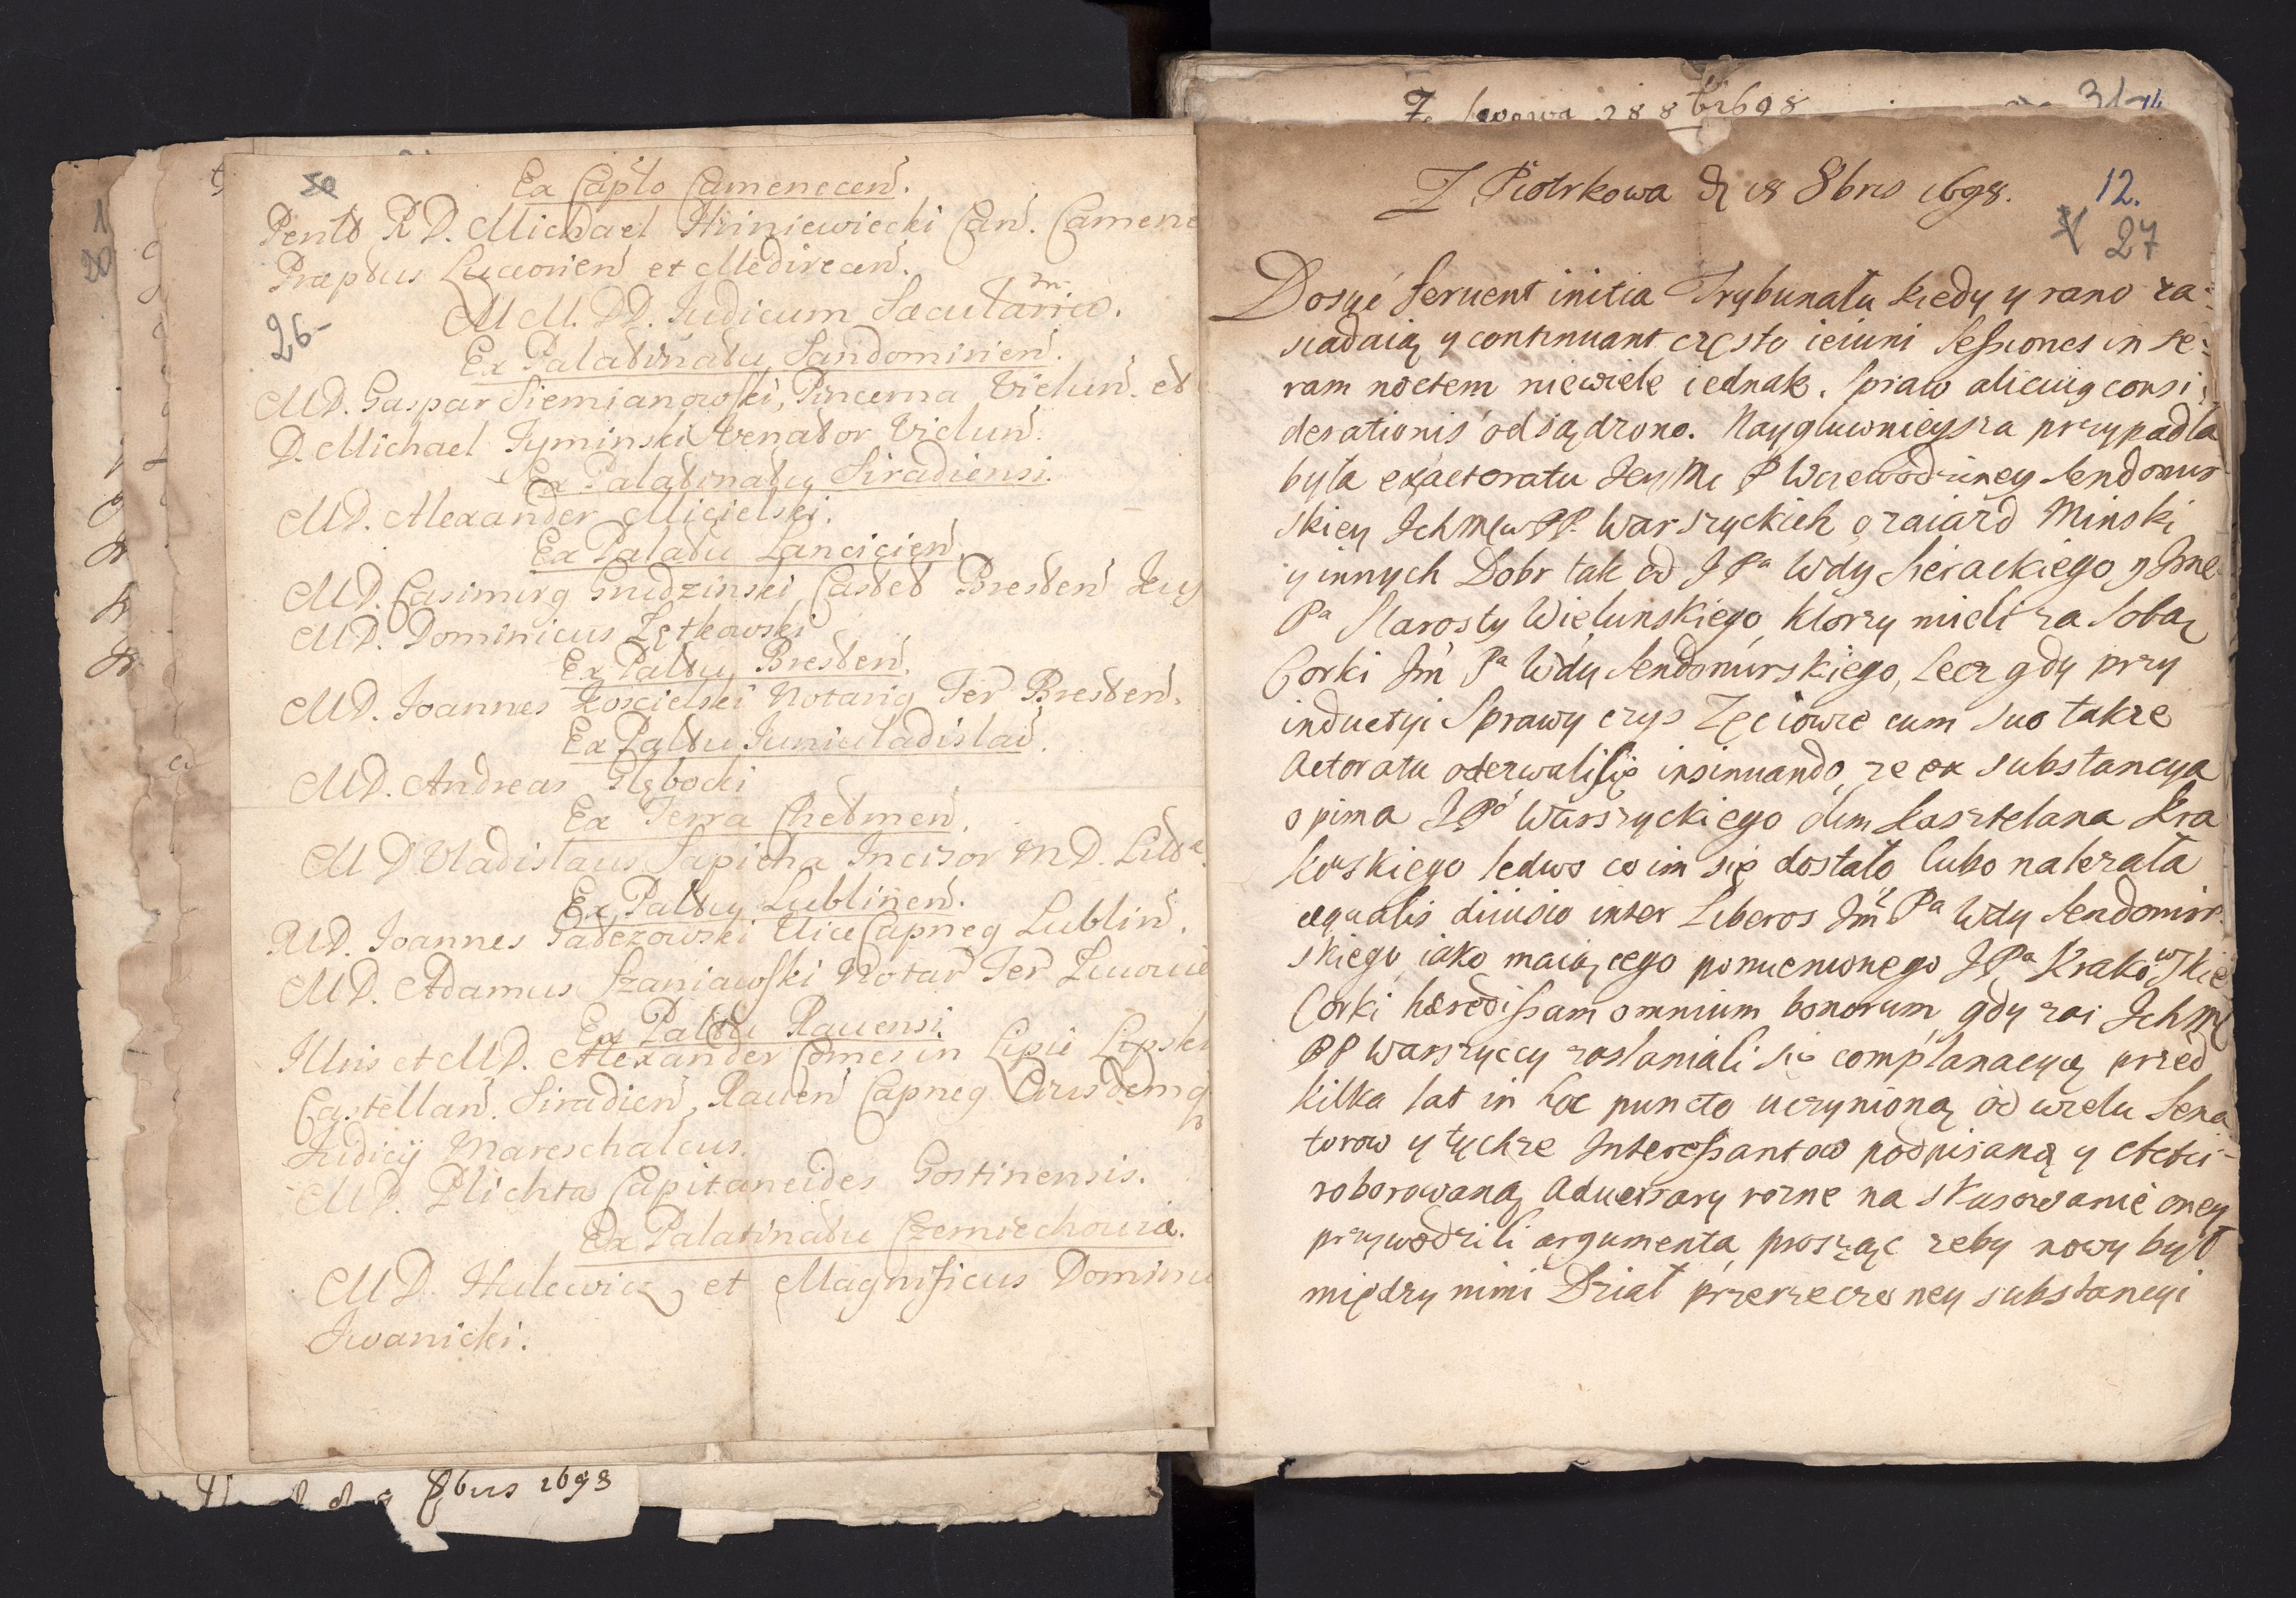 50
Ex Capło Camenecen.
Rends R D. Michael Hiniewiecki Can. Camene
Præptus Luceorien et Medirecen.
M M. DD. Judicum Sæcularium.
26-
Ex Palatinatu Sandomirien.
MD. Gaspar Siemianowski, Pincerna Vielun. et
D. Michael Tyminski Venator Vielun.
Ex Palatinatu Siradiensi.
MD. Alexander Micielski.
Ex Palatu Lancicien.
MD. Casimirq Grudzinski, Castet Bresten
MD. Dominicus Zętkowski
Ex Paltu Bresten.
MD. Joannes Koscielski Notariq Ter Bresten.
Ex Paltu Juniuladislau.
MD. Andreas Głębocki
Ex Terra Chełmen.
M D Vladislaus Sapieha Incisor M D. Litt
Ex Paltu Lublinen.
MD. Joannes Vice Capneq Lublin.
MD. Adamus Szaniawski Notar Ter
Ex Paltu Rauensi.
Illris et MD. Alexander Comes in Lipie Lipski
Castellan. Siradien, Rauen Capneq
Judicij Mareschalcus.
MD. Plichta Capitaneides Gostinensis.
Ex Palatinatu Czerniechouiæ.
MD. Hulewicz et Magnificus Dominu
Iwanicki.
8bris 1698
31
Z Piotrkowa D 18 8bris 1698.
12.
27
Dosyć feruent initia Trybunału kiedy y rano za-
siadaią y continuant często ieiuni Sessiones in se-
ram noctem niewiele iednak. Spraw alicuiq consi-
derationis odsądzono. Naygłuwnieysza przypadła
była ex actoratu Jey Mc P Woiewodziney Sendomir
skiey Ichmciw PP. Warszyckich o zaiazd Minski
y innych Dobr tak od J Pa Wdy Sierackiego y Jme
Pa Starosty Wielunskiego, ktorzy mieli za Sobą
Corki Jm Pa Wdy Sendomirskiego, Lecz gdy przy
inductyi Sprawy czys Zęciowie cum suo także
Actoratu oderwalisię insinuando, ze ex substancya
opima J Po Warszyckiego olim Kasztelana Kra
kowskiego ledwo co im się dostało lubo należała
æqualis diuisio inter Liberos Jm Pa Wdy Sendomir-
skiego iako maiącego pomienionego J Pa Krakowskie
Corki hæredissam omnium bonorum, gdy zai Ichmc
PP Warszyccy zasłaniali się complanacyą przed
kilka lat in hoc puncto uczynioną od wielu Sena
torow y tychze Interessantow podpisaną y Actis
roborowaną Aduersary rozne na skasowanie oney
przywodzili argumenta, prosząc zeby nowy był
między nimi Dział przerzeczoney substancyi